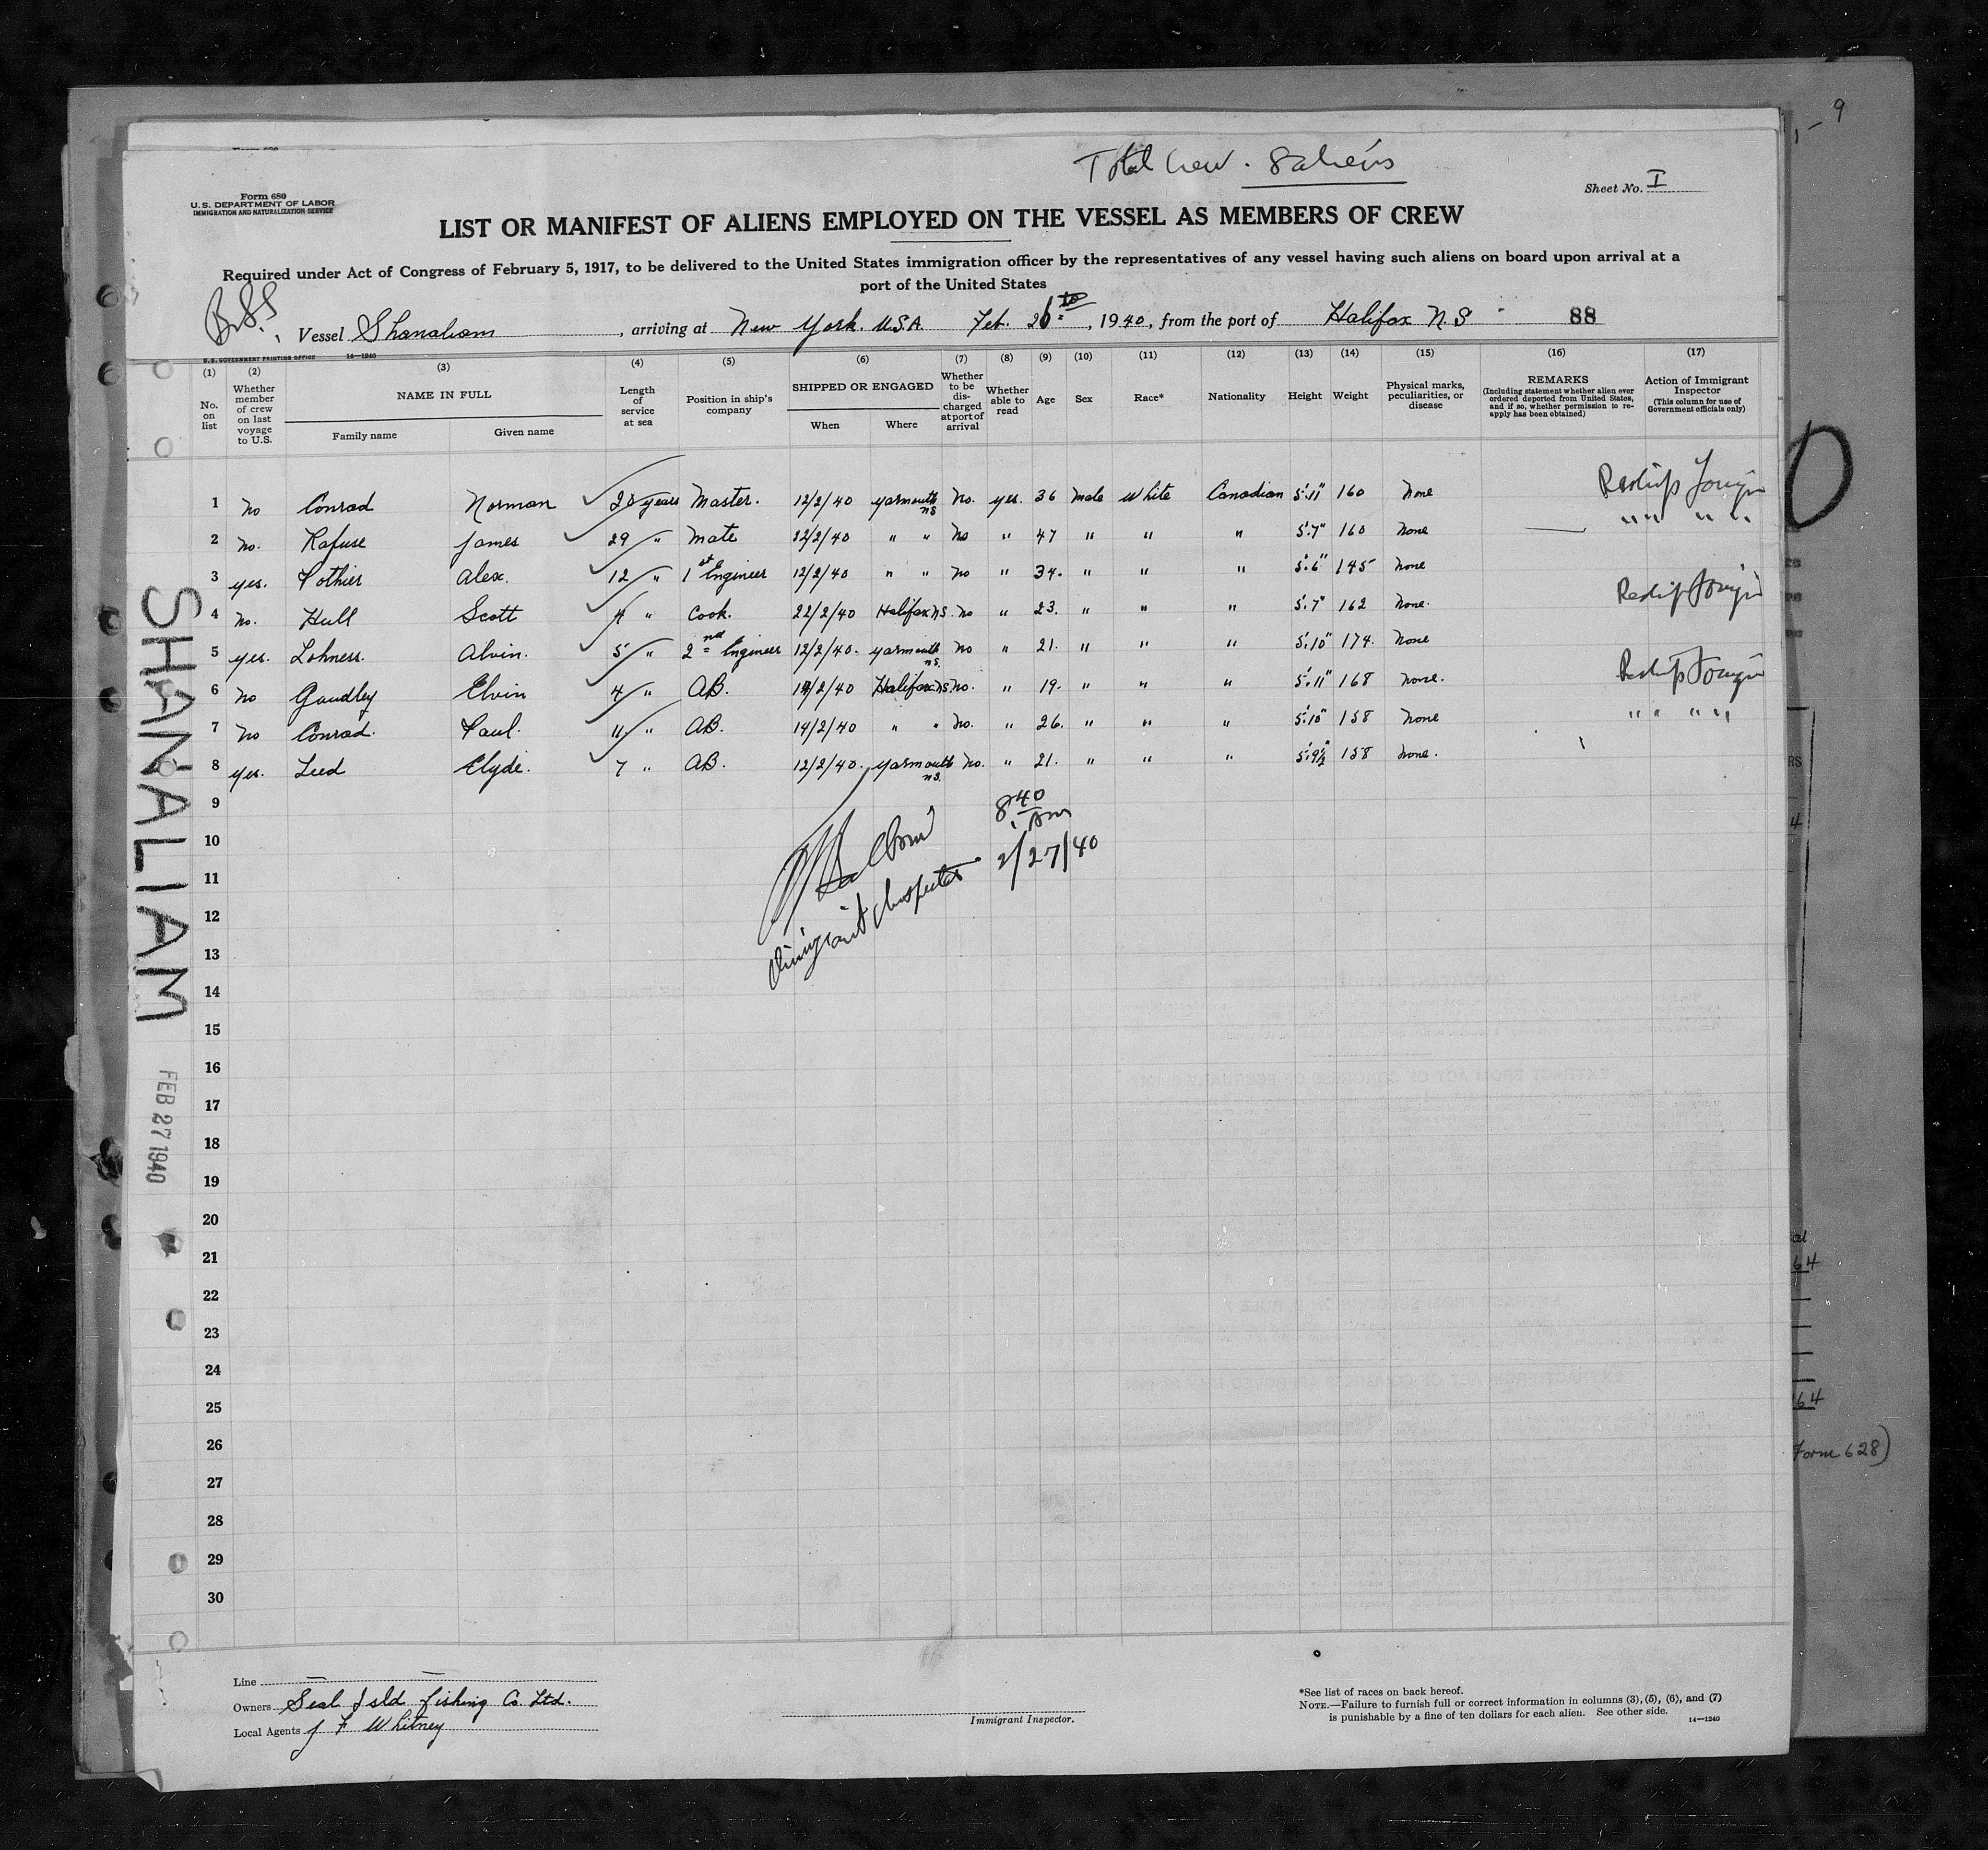 Total Crew. 8 aliens
Form 680
U.S. DEPARTMENT OF LABOR
IMMIGRATION AND NATURALIZATION SERVICE
Sheet No. I
LIST OR MANIFEST OF ALIENS EMPLOYED ON THE VESSEL AS MEMBERS OF CREW
Required under Act of Congress of February 5, 1917, to be delivered to the United States immigration officer by the representatives of any vessel having such aliens on board upon arrival at a
port of the United States
Vessel Shanaliam, arriving at New York. U.S.A. Feb. 26th, 1940, from the port of Halifax N.S 88
U.S. GOVERNMENT PRINTING OFFICE 14—1240
(1) (2) (3) (4) (5) (6) (7) (8) (9) (10) (11) (12) (13) (14) (15) (16) (17)
No. on list
Whether member of crew on last voyage to U.S.
NAME IN FULL
Family name Given name
Length of service at sea
Position in ship's company
SHIPPED OR ENGAGED
When Where
Whether to be discharged at port of arrival
Whether able to read
Age
Sex
Race*
Nationality
Height
Weight
Physical marks, peculiarities, or disease
REMARKS
(Including statement whether alien ever ordered deported from United States, and if so, whether permission to reapply has been obtained)
Action of Immigrant Inspector
(This column for use of Government officials only)
1 no Conrad Norman 20 years Master. 12/2/40 Yarmouth NS no. yes. 36 male White Canadian 5'.11" 160 None
2 no. Rafuse James 29 " Mate 12/2/40 " " No " 47 " " " 5'.7" 160 None " " " "
3 yes. Pothier Alex. 12 " 1st Engineer 12/2/40 " " no " 34. " " " 5'.6" 145 None
4 no. Hull Scott 4 " Cook. 22/2/40 Halifax N.S. no " 23. " " " 5'.7" 162 None.
5 yes. Lohness. Alvin. 5 " 2nd Engineer 12/2/40. Yarmouth NS. no " 21. " " " 5'.10" 174. None
6 no Gaudley Elvin 4 " AB. 14/2/40 Halifax N.S. no. " 19. " " " 5'.11" 168 None.
7 no Conrad. Paul. 11 " AB. 14/2/40 " " no. " 26. " " " 5'.10" 158 None " " " "
8 yes. Leed Clyde. 7 " AB. 12/2/40. Yarmouth NS. no. " 21. " " " 5'.9½" 158 None.
9
10
11
12
13
14
15
16
17
18
19
20
21
22
23
24
25
26
27
28
29
30
8 40 AM
2/27/40
Immigrant Inspector
SHANALIAM
FEB 27 1940
Line
Owners Seal Isld Fishing Co. Ltd.
Local Agents J F Whitney
Immigrant Inspector.
*See list of races on back hereof.
NOTE.—Failure to furnish full or correct information in columns (3), (5), (6), and (7)
is punishable by a fine of ten dollars for each alien. See other side.
14—1240
9
64
64
Form 628)